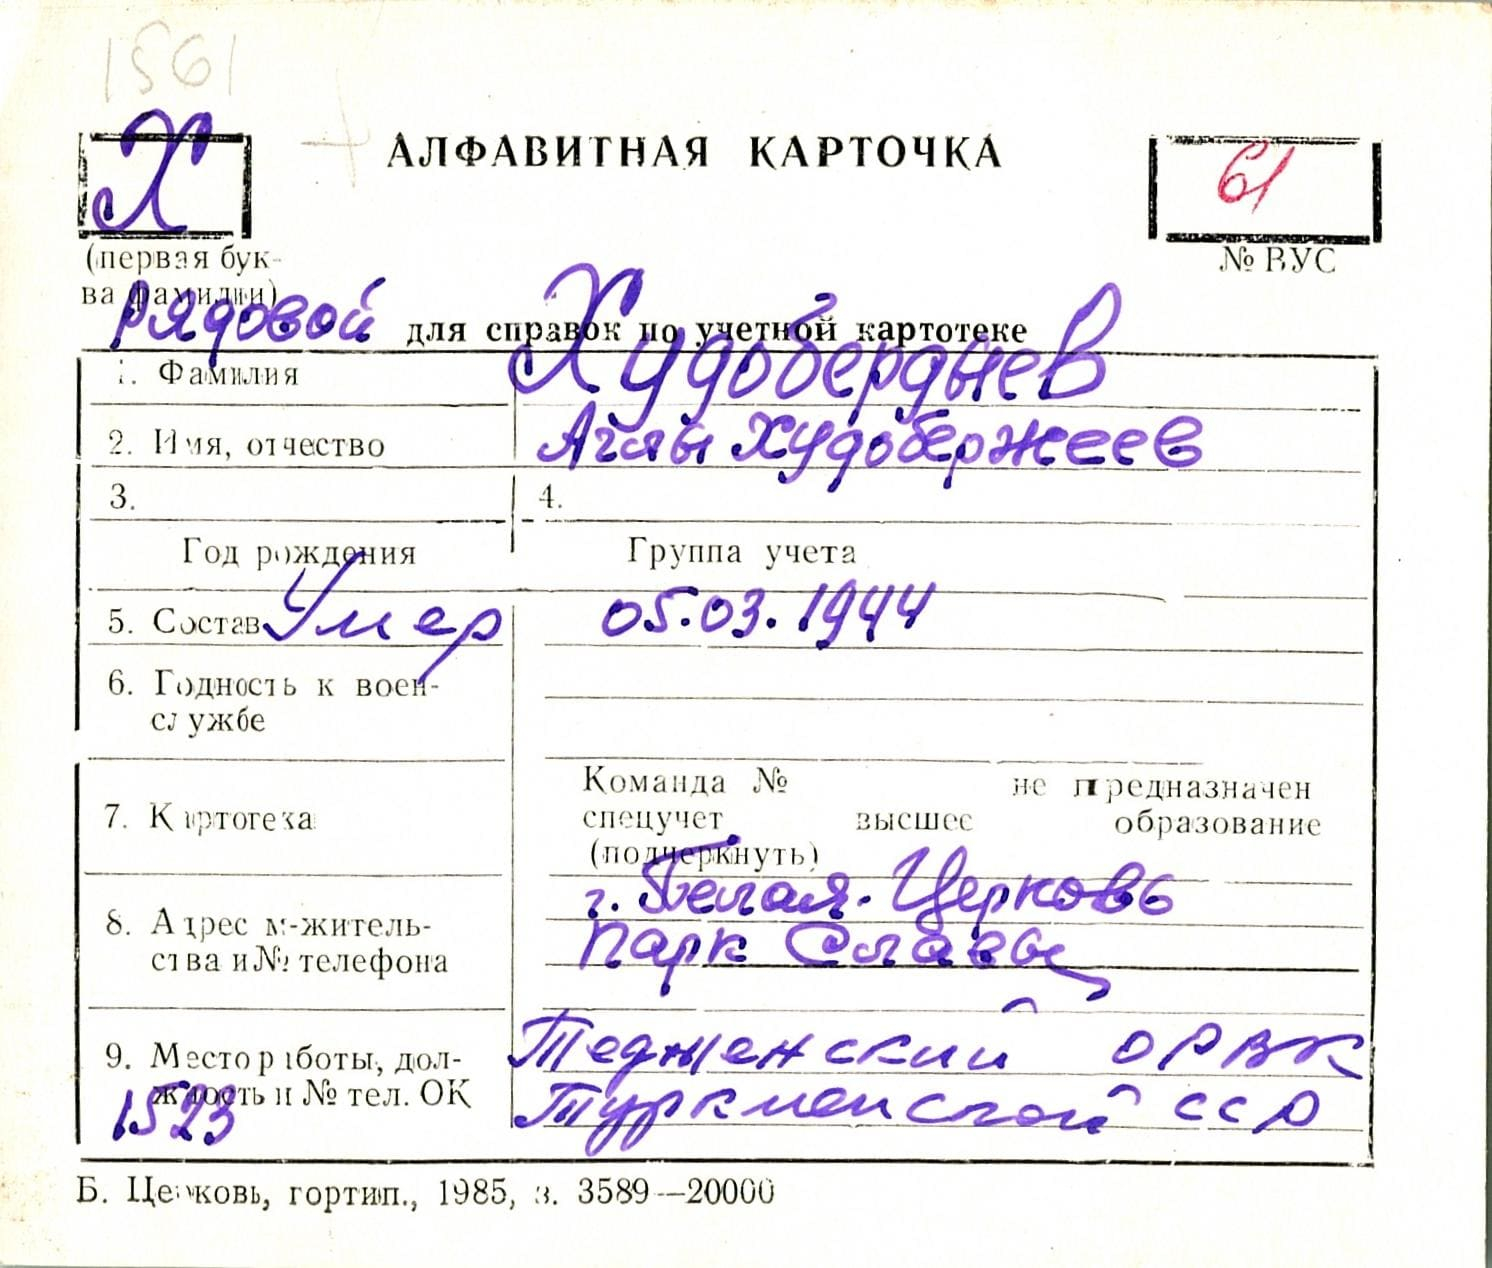 1561
Х
АЛФАВИТНАЯ КАРТОЧКА
61
(первая бук-
ва фамилии)
№ ВУС
Рядовой
для справок по учетной картотеке
1. Фамилия
Худобердыев
2. Имя, отчество
Аглы Худобержеев
3.
4.
Год рождения
Группа учета
5. Состав
Умер 05.03.1944
6. Годность к воен-
службе
7. Картотека
Команда № не предназначен
спецучет высшее образование
(подчеркнуть)
8. Адрес м-житель-
ства и № телефона
г. Белая-Церковь
парк Славы
9. Место работы, дол-
жность и № тел. ОК
1523
Тедженский ОРВК
Туркменской ССР
Б. Церковь, гортип., 1985, з. 3589—20000